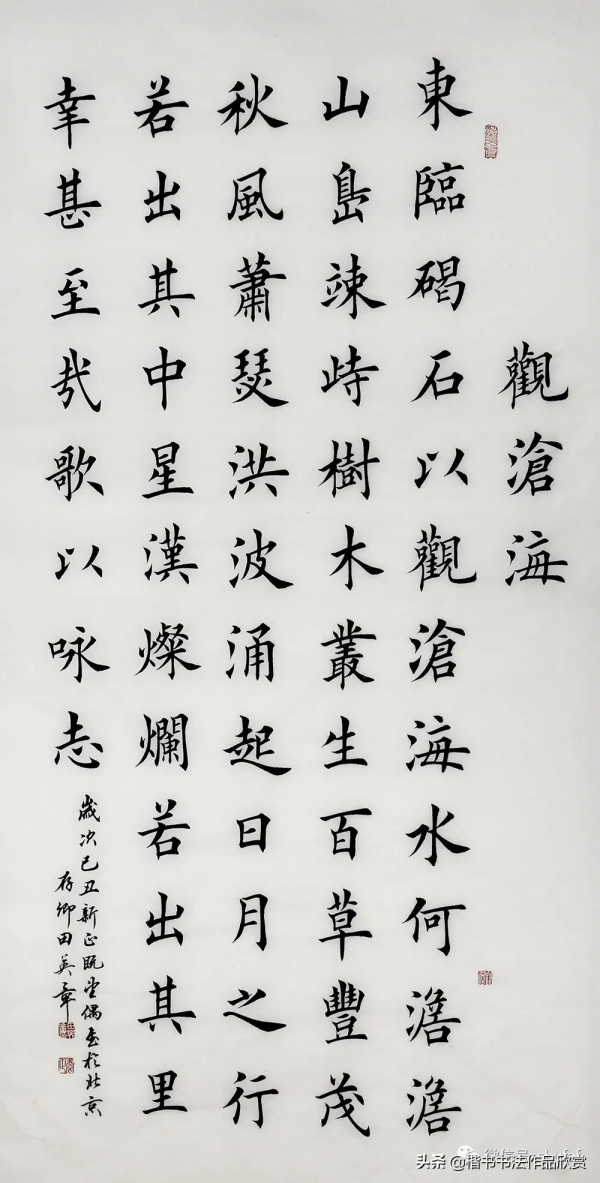 觀滄海
東臨碣石以觀滄海水何澹澹
山島竦峙樹木叢生百草豐茂
秋風蕭瑟洪波涌起日月之行
若出其中星漢燦爛若出其里
幸甚至哉歌以咏志
歲次己丑新正既望偶書於北京
存卿田英章
头条@楷书书法作品欣赏